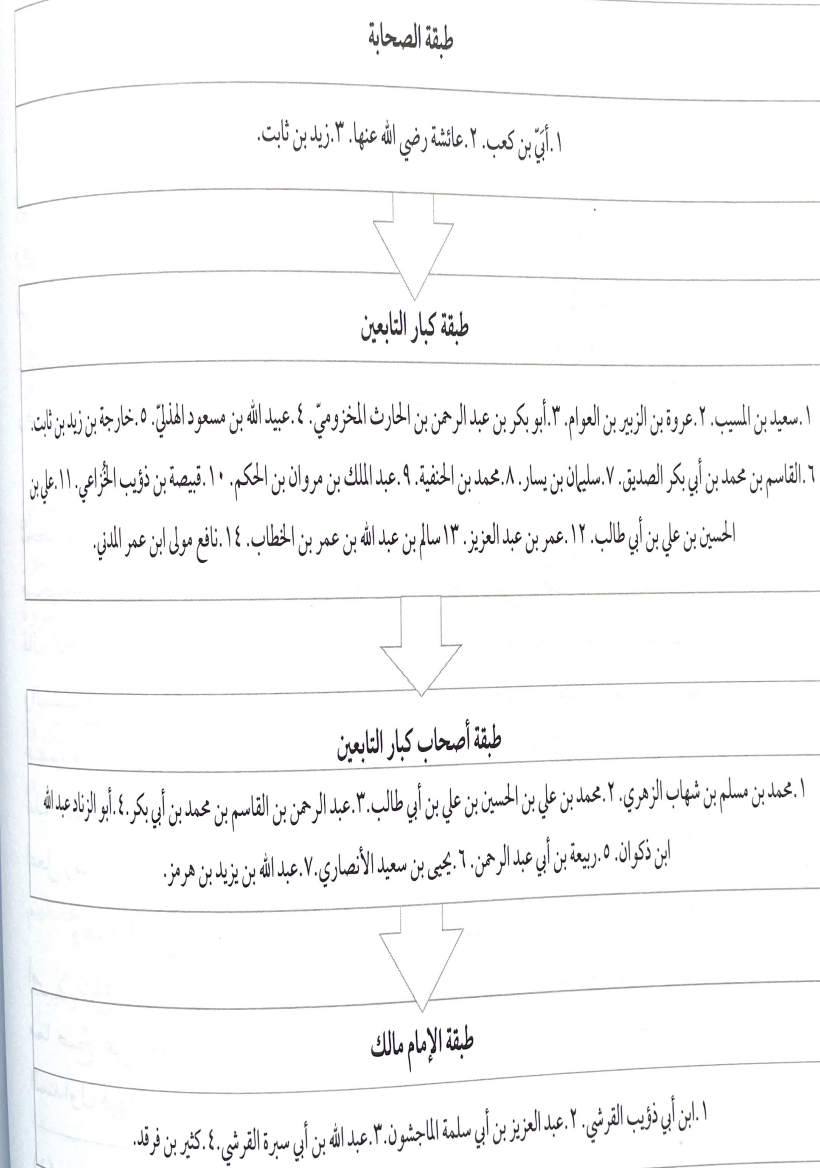 طبقة الصحابة
١.أُبَيّ بن كعب. ٢.عائشة رضي الله عنها. ٣.زيد بن ثابت.
طبقة كبار التابعين
١.سعيد بن المسيب. ٢.عروة بن الزبير بن العوام. ٣.أبو بكر بن عبد الرحمن بن الحارث المخزوميّ. ٤.عبيد الله بن مسعود الهذليّ. ٥.خارجة بن زيد بن ثابت.
٦.القاسم بن محمد بن أبي بكر الصديق. ٧.سليمان بن يسار. ٨.محمد بن الحنفية. ٩.عبد الملك بن مروان بن الحكم. ١٠.قبيصة بن ذؤيب الخُزاعي. ١١.علي بن
الحسين بن علي بن أبي طالب. ١٢.عمر بن عبد العزيز. ١٣سالم بن عبد الله بن عمر بن الخطاب. ١٤.نافع مولى ابن عمر المدني.
طبقة أصحاب كبار التابعين
١.محمد بن مسلم بن شهاب الزهري. ٢.محمد بن علي بن الحسين بن علي بن أبي طالب.٣.عبد الرحمن بن القاسم بن محمد بن أبي بكر.٤.أبو الزناد عبد الله
ابن ذكوان. ٥.ربيعة بن أبي عبد الرحمن. ٦.يحيى بن سعيد الأنصاري.٧.عبد الله بن يزيد بن هرمز.
طبقة الإمام مالك
١.ابن أبي ذؤيب القرشي. ٢.عبد العزيز بن أبي سلمة الماجشون.٣.عبد الله بن أبي سبرة القرشي.٤.كثير بن فرقد.